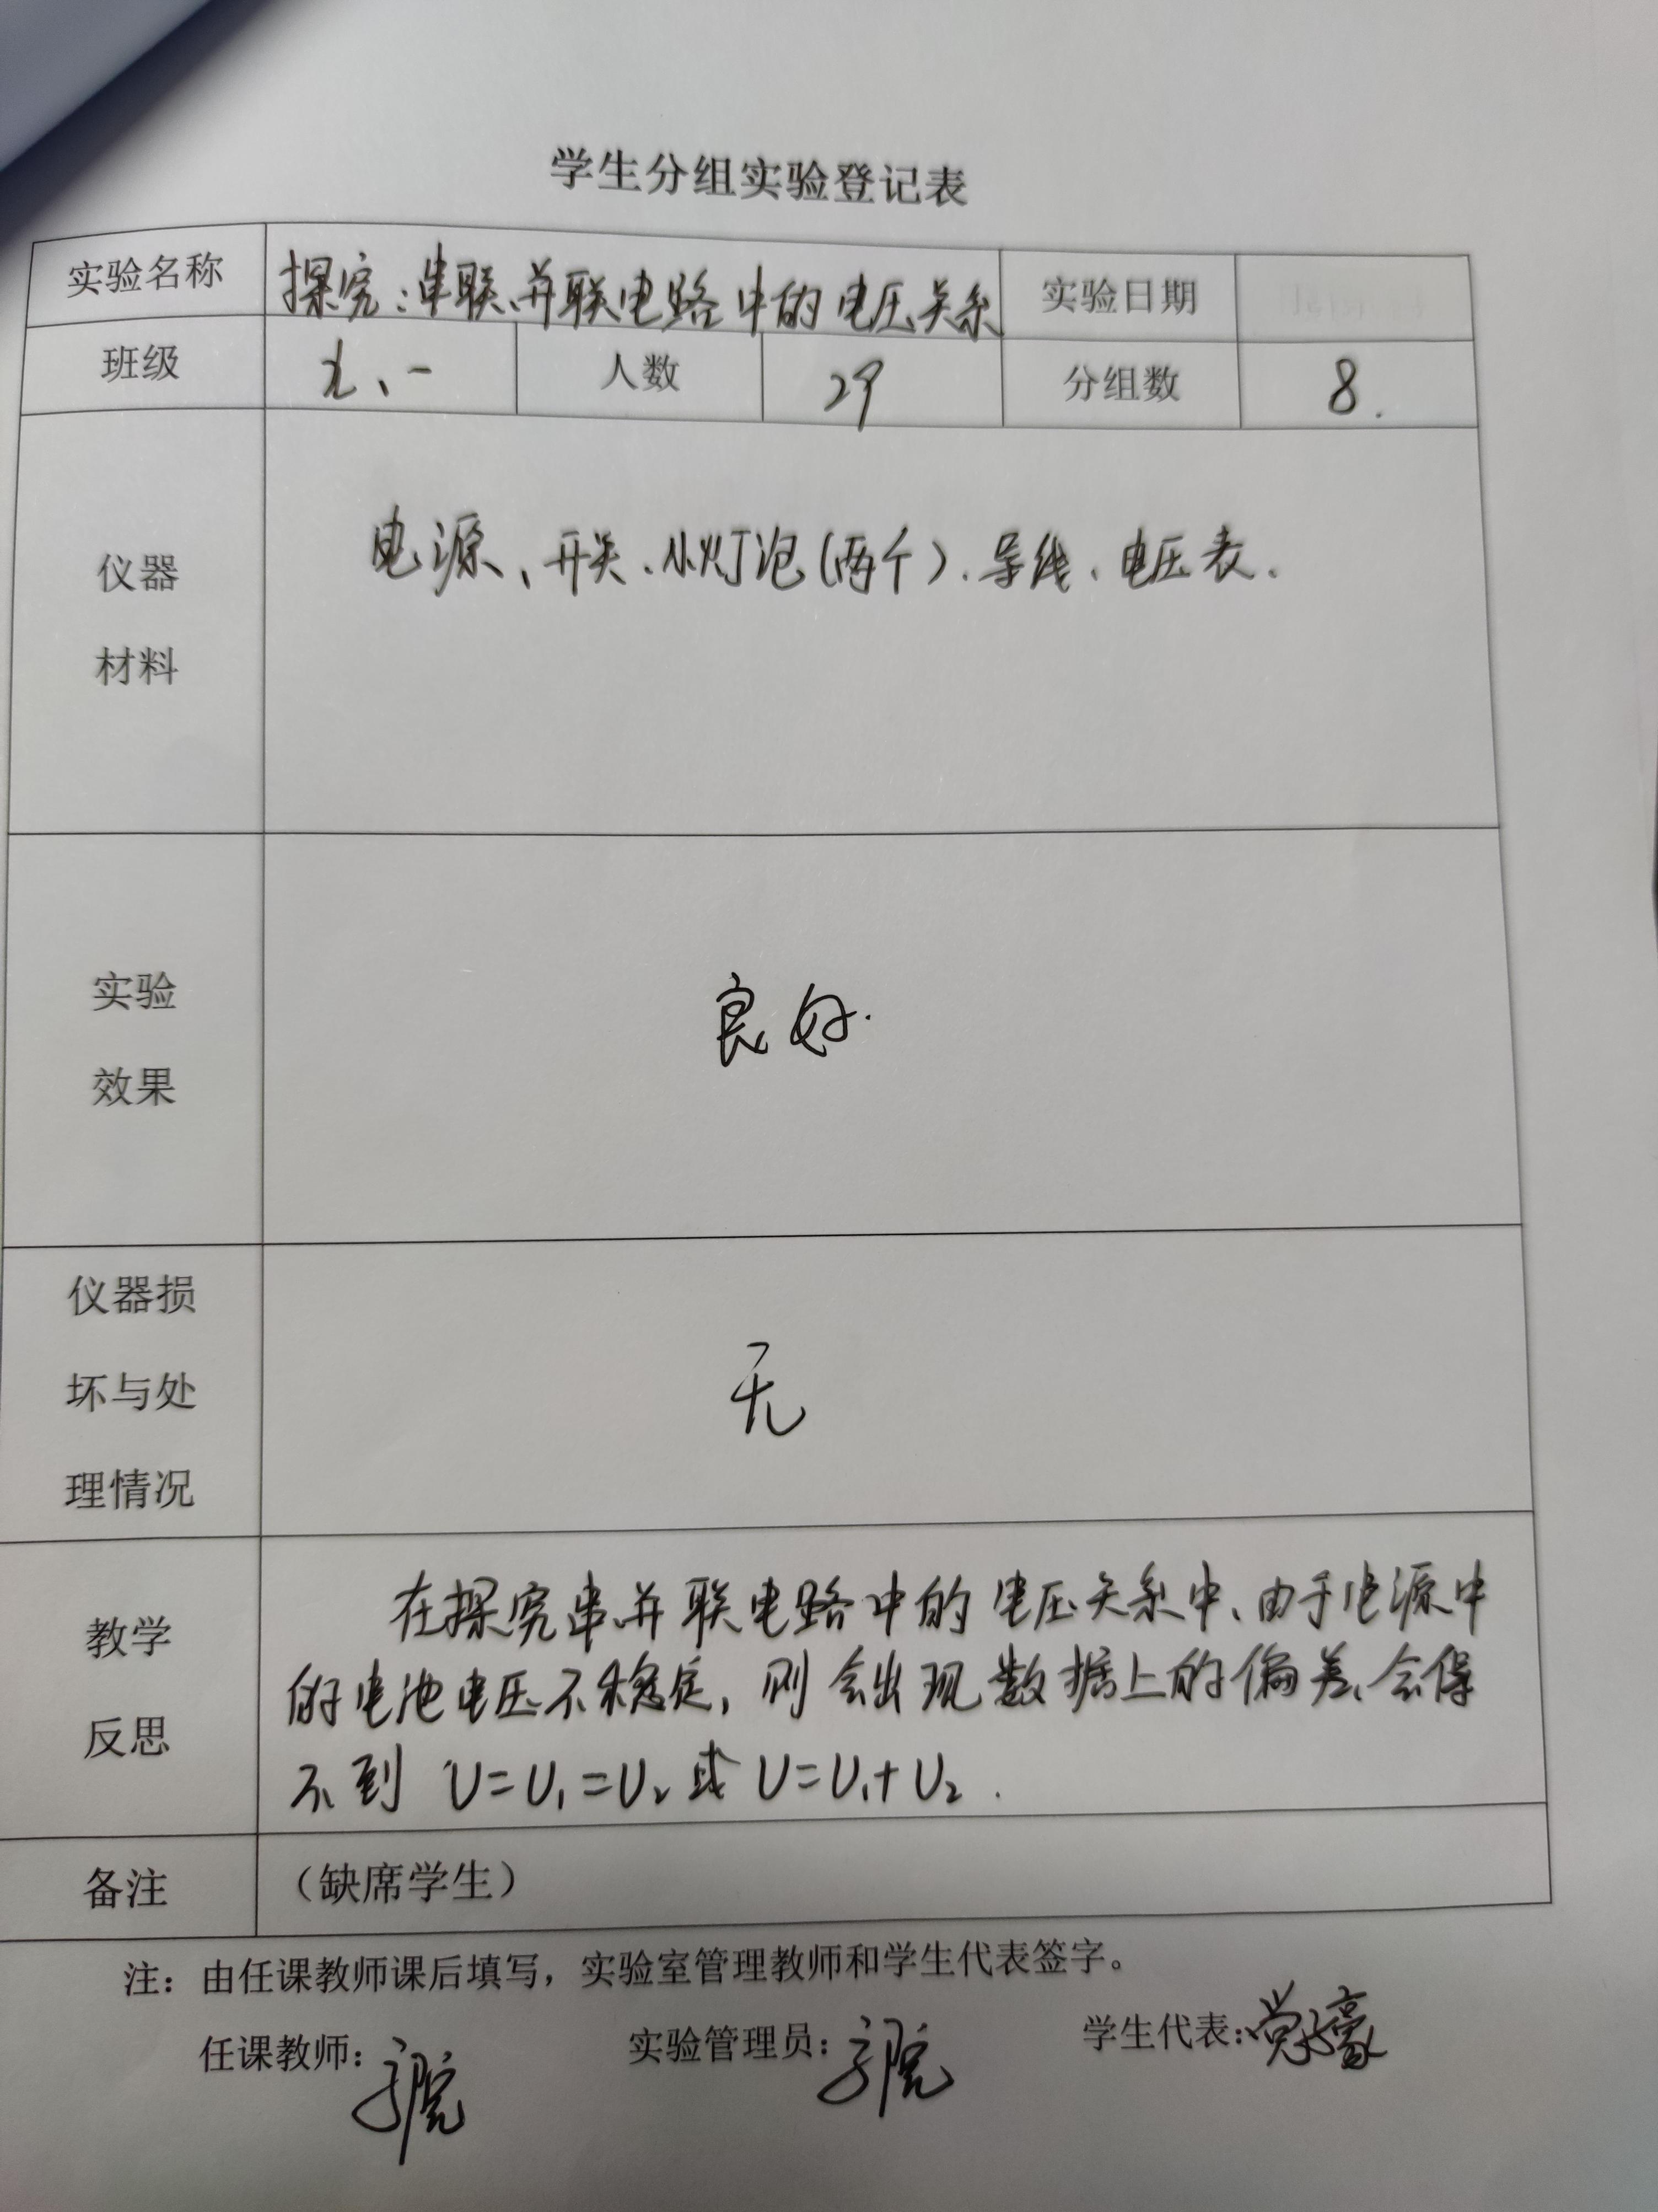 学生分组实验登记表
实验名称 探究:串联、并联电路中的电压关系 实验日期
班级 九、一 人数 29 分组数 8.
仪器
材料
电源、开关、小灯泡(两个)、导线、电压表.
实验
效果
良好.
仪器损
坏与处
理情况
无
教学
反思
在探究串并联电路中的电压关系中、由于电源中
的电池电压不稳定,则会出现数据上的偏差、会得
不到 U=U₁=U₂ 或 U=U₁+U₂.
备注 (缺席学生)
注:由任课教师课后填写,实验室管理教师和学生代表签字。
任课教师: 实验管理员: 学生代表: